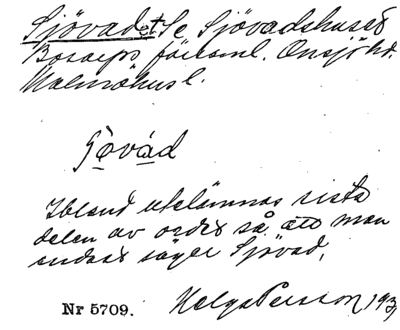 Sjövadet Se Sjövadshuset
Bosarps församl. Onsjö hd.
Malmöhus l.
Ibland utelämnas sista
delen av ordet så att man
endast säger Sjövad.
Nr 5709. Helga Persson 193